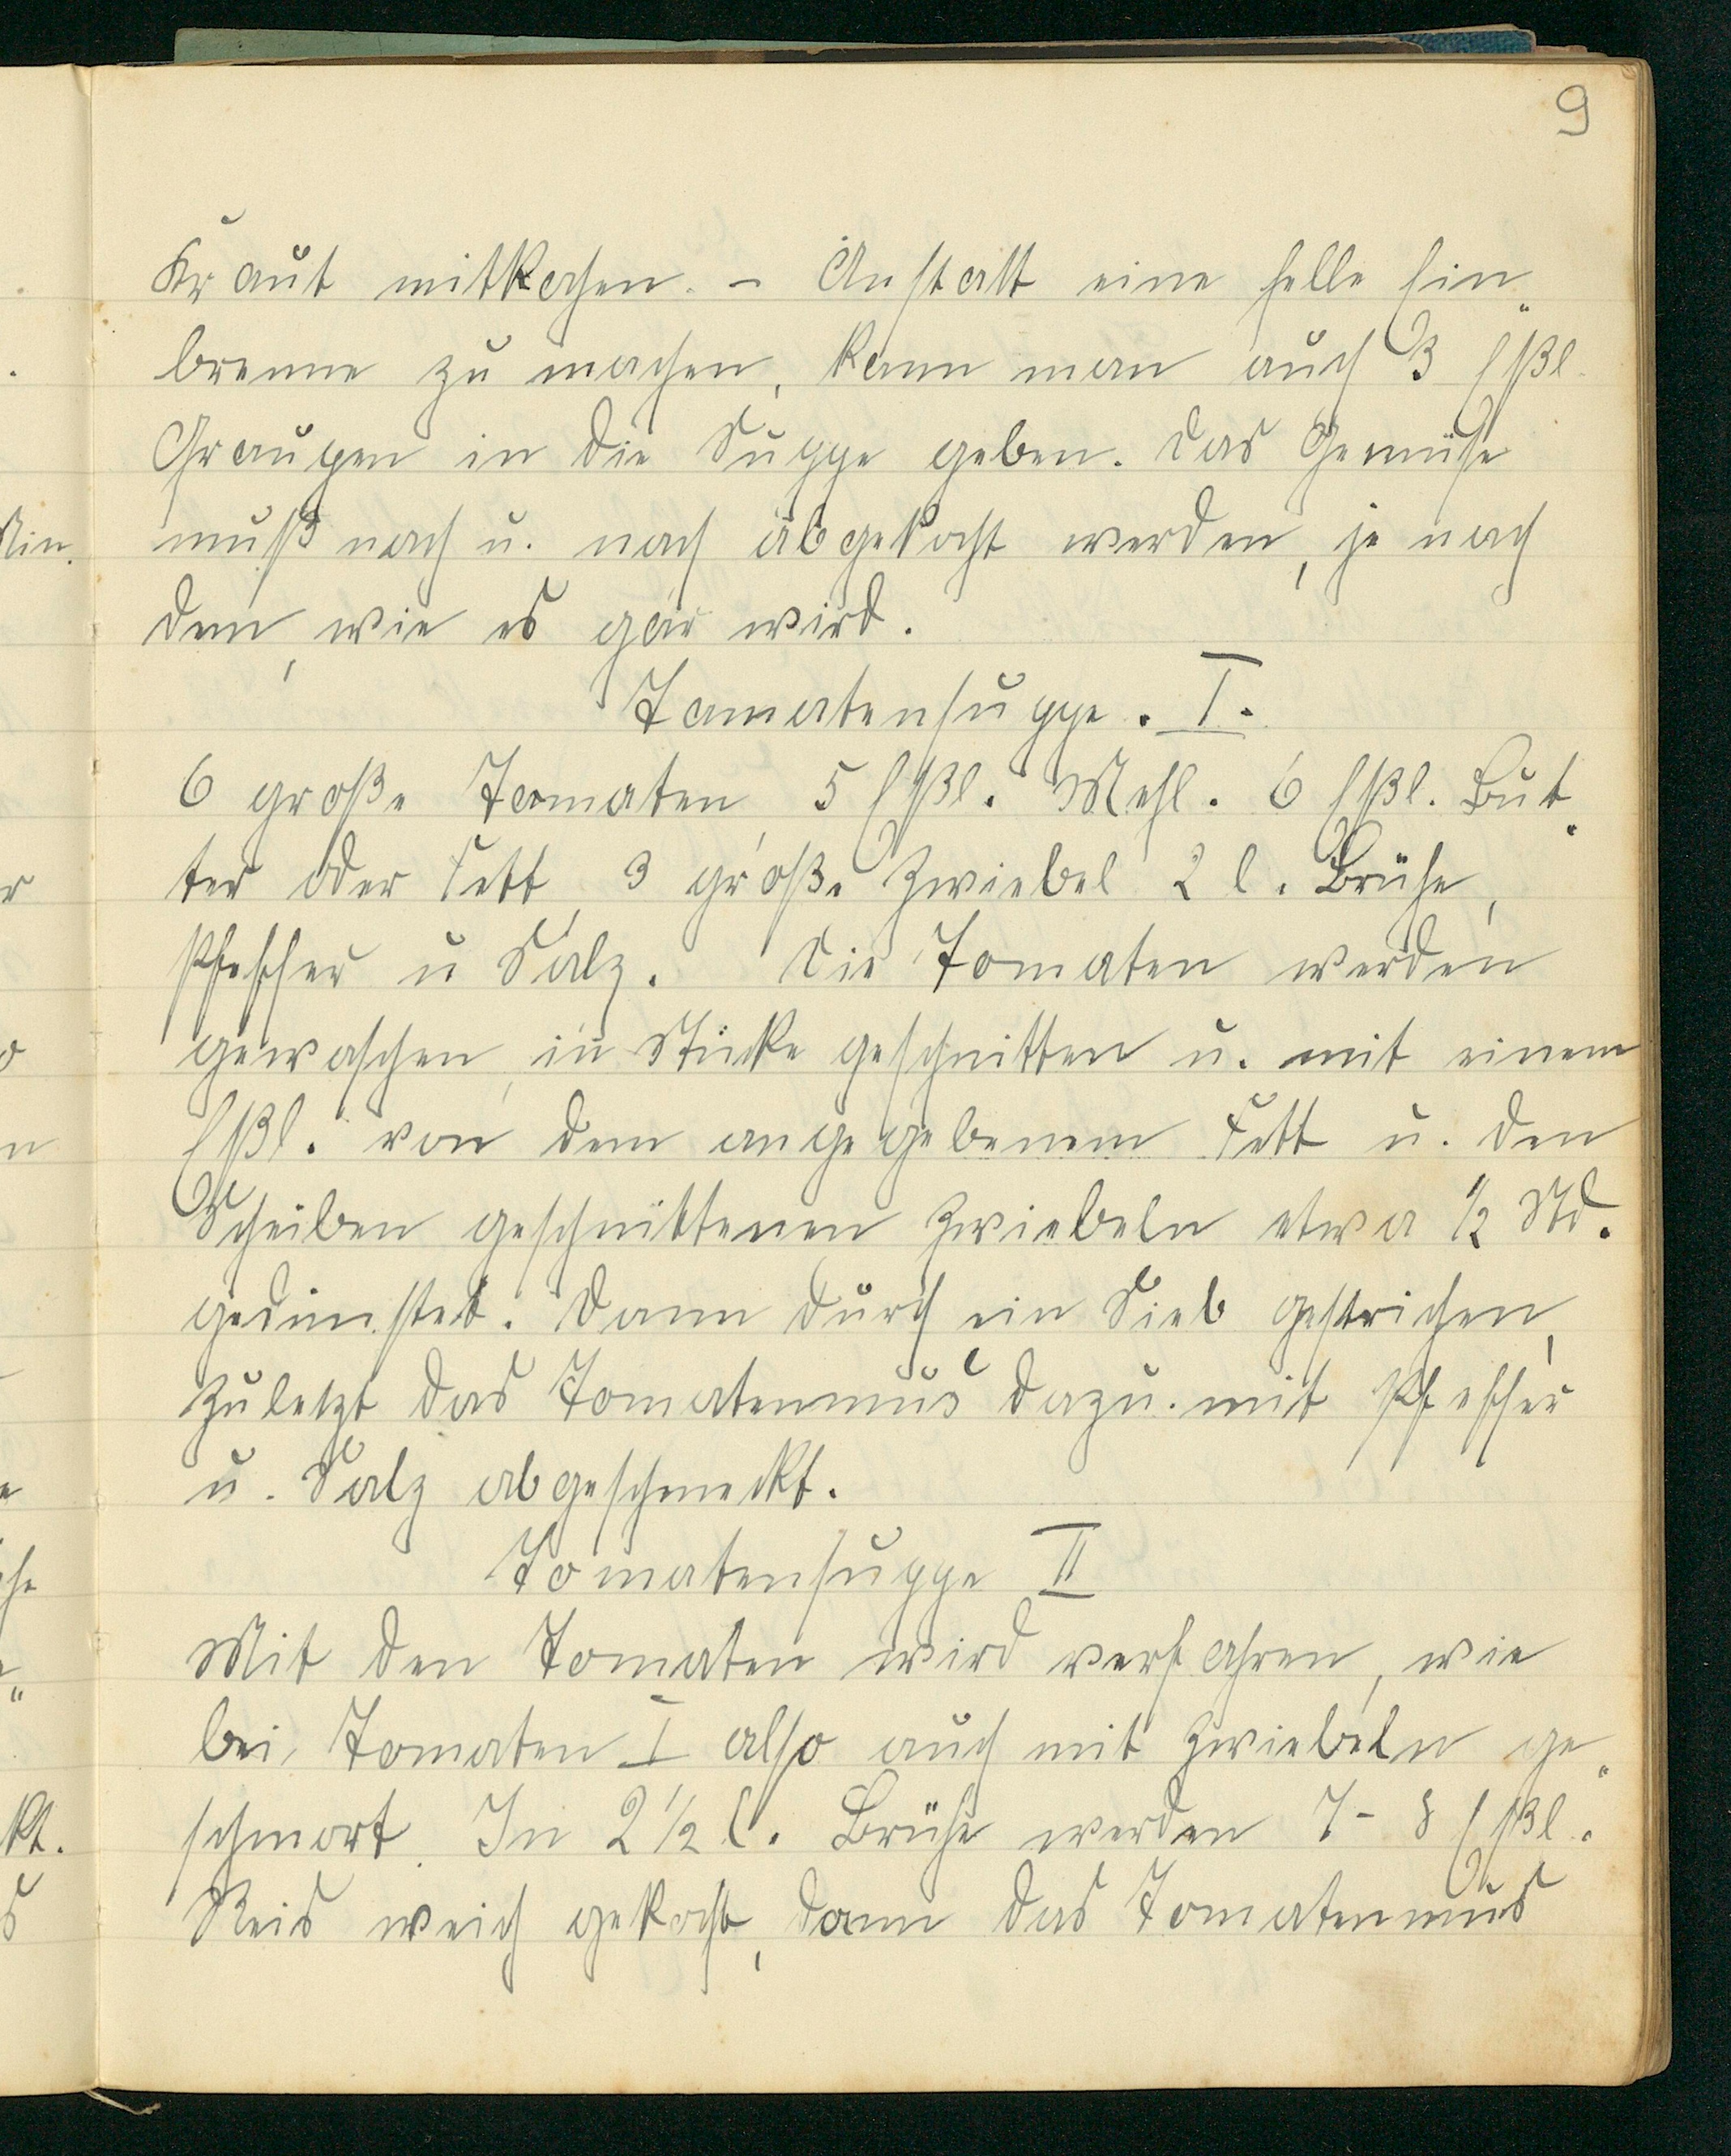 9
Kraut mitkochen. – Anstatt eine helle Ein„
brenne zu machen, kann man auch 3 Eßl.
Graupen in die Suppe geben. Das Gemüse
muß nach u. nach abgekocht werden, je nach
dem, wie es gar wird.
Tomatensuppe. I.
6 große Tomaten, 5 Eßl. Mehl. 6 Eßl. But„
ter oder Fett, 3 große Zwiebel 2 l. Brühe,
Pfeffer u Salz. Die Tomaten werden
gewaschen, in Stücke geschnitten u. mit einem
Eßl. von dem angegebenem Fett u. den
Scheiben geschnittenen Zwiebeln etwa ½ Std.
gedünstet. Dann durch ein Sieb gestrichen,
zuletzt das Tomatenmus dazu. mit Pfeffer
u. Salz abgeschmeckt.
Tomatensuppe II
Mit den Tomaten wird verfahren, wie
bei Tomaten I also auch mit Zwiebeln ge„
schmort. In 2 ½ l. Brühe werden 7 - 8 Eßl.
Reis weich gekocht, dann das Tomatenmus